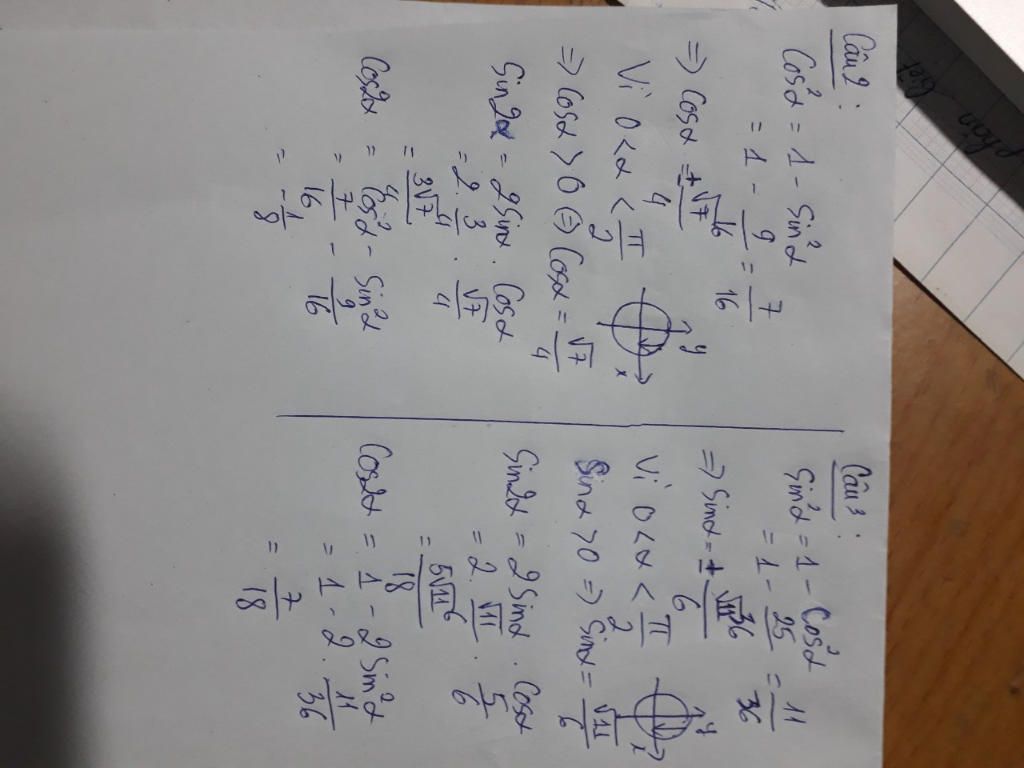 Câu 2:
Cos²α = 1 - Sin²α
= 1 - 9/16 = 7/16
=> Cosα = ± √7/4
Vì 0 < α < π/2
y
x
=> Cosα > 0 (=) Cosα = √7/4
Sin2α = 2Sinα . Cosα
= 2 . 3/4 . √7/4
= 3√7/4
Cos2α = Cos²α - Sin²α
= 7/16 - 9/16
= -1/8
Câu 3:
Sin²α = 1 - Cos²α
= 1 - 25/36 = 11/36
=> Sinα = ± √11/6
Vì 0 < α < π/2
y
x
Sinα > 0 => Sinα = √11/6
Sin2α = 2Sinα . Cosα
= 2 . √11/6 . 5/6
= 5√11/18
Cos2α = 1 - 2Sin²α
= 1 - 2 . 11/36
= 7/18
phân